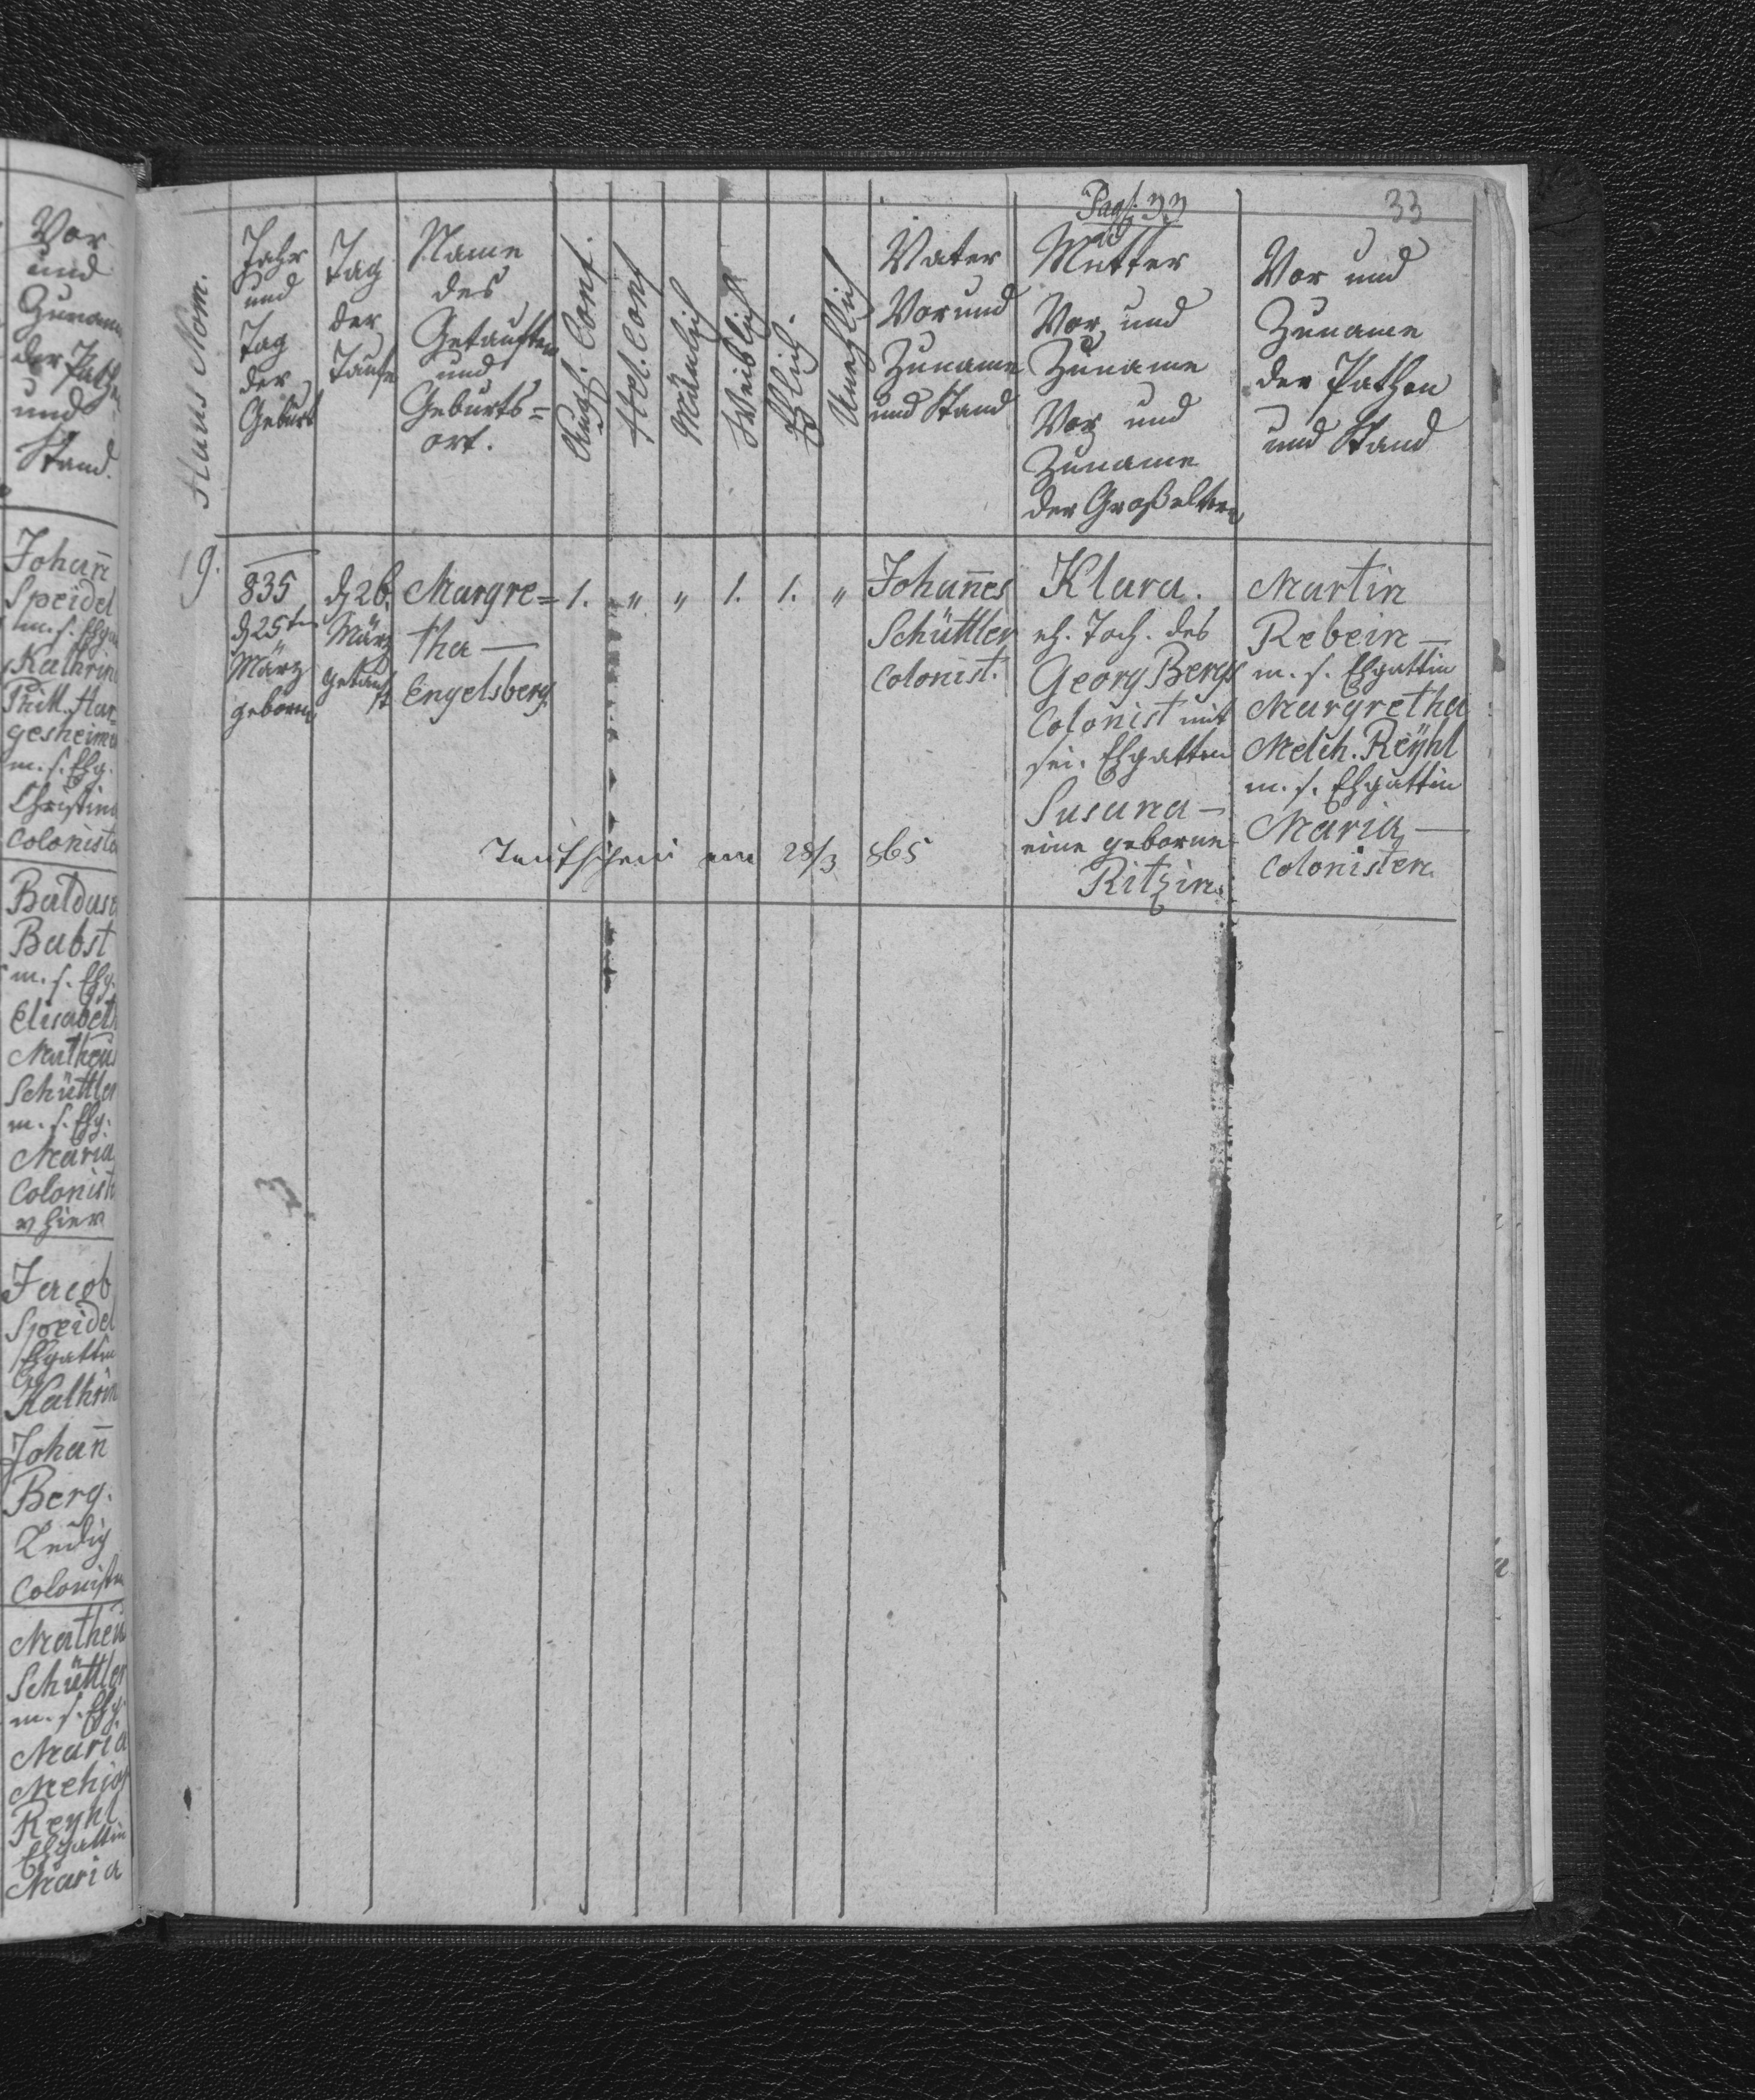 Vor
und
Zuname
der Pathe
und
Stand.
Johan̄
Speidel
m. s. Ehg
Kathrin
Phill. Har=
gesheime
m. s. Ehg.
Christina
Coloniste
Baldus
Babst
m. s. Ehg.
Elisabeth
Matheus
Schüttler
m. s. Ehg.
Maria
Colonist
v hier
Jacob
Speidel
Ehgattin
Kathrin
Johan̄
Berg.
Ledig
Colonisten
Matheus
Schüttler
m. s. Ehg.
Maria
Reyhl
Ehgattin
Maria
Pag: 33
33
Haus Nom.
Jahr
und
Tag
der
Geburt
Tag
der
Taufe
Name
des
Getauften
und
Geburts=
ort.
Augs. Conf.
Hel. Conf
Mänlich
Weiblich
Ehlich.
Unehlich
Vater
Vor und
Zuname
und Stand
Mutter
Vor und
Zuname
Vor und
Zuname
der Großeltern
Vor und
Zuname
der Pathen
und Stand
19.
835
d 25ten
März
geboren
d 26.
März
getauft
Margre=
tha —
Engelsberg.
1. " " 1. 1. "
Johan̄es
Schüttler
Colonist.
Klara.
eh. Toch. des
Georg Bergs
Colonist mit
sei. Ehgatten
Susana —
eine geborne
Ritzin.
Martin
Rebein —
m. s. Ehgattin
Margretha
Melch. Reÿhl
m. s. Ehgattin
Maria —
Colonisten.
Taufschein am 28/3 865